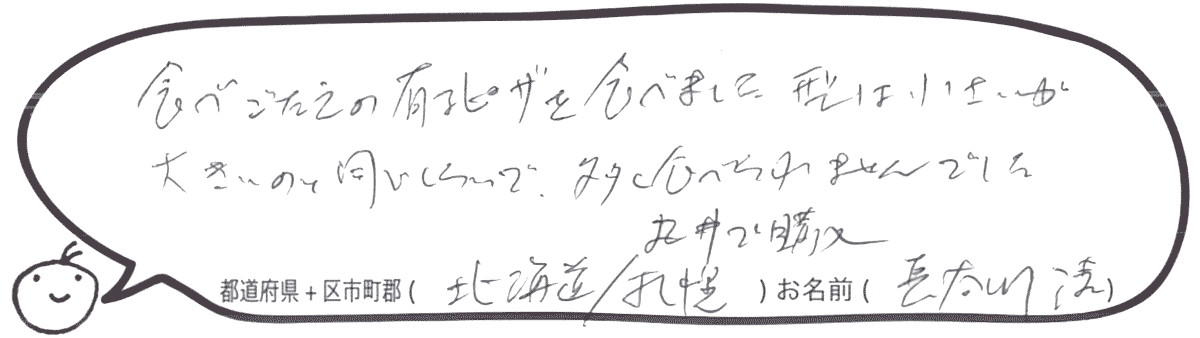 食べごたえの有るピザを食べました 型は小さいが
大きいのと同じくらいで、多く食べられませんでした
丸井で購入
都道府県+区市町郡( 北海道/札幌 )お名前( 長谷川 )